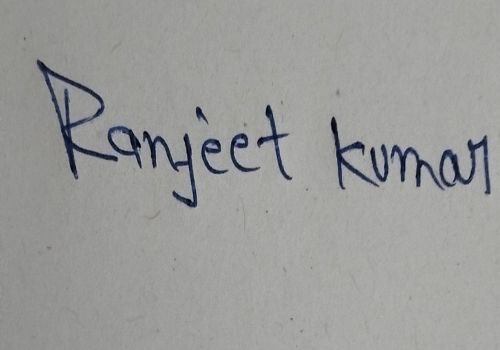 Ranjeet kumar